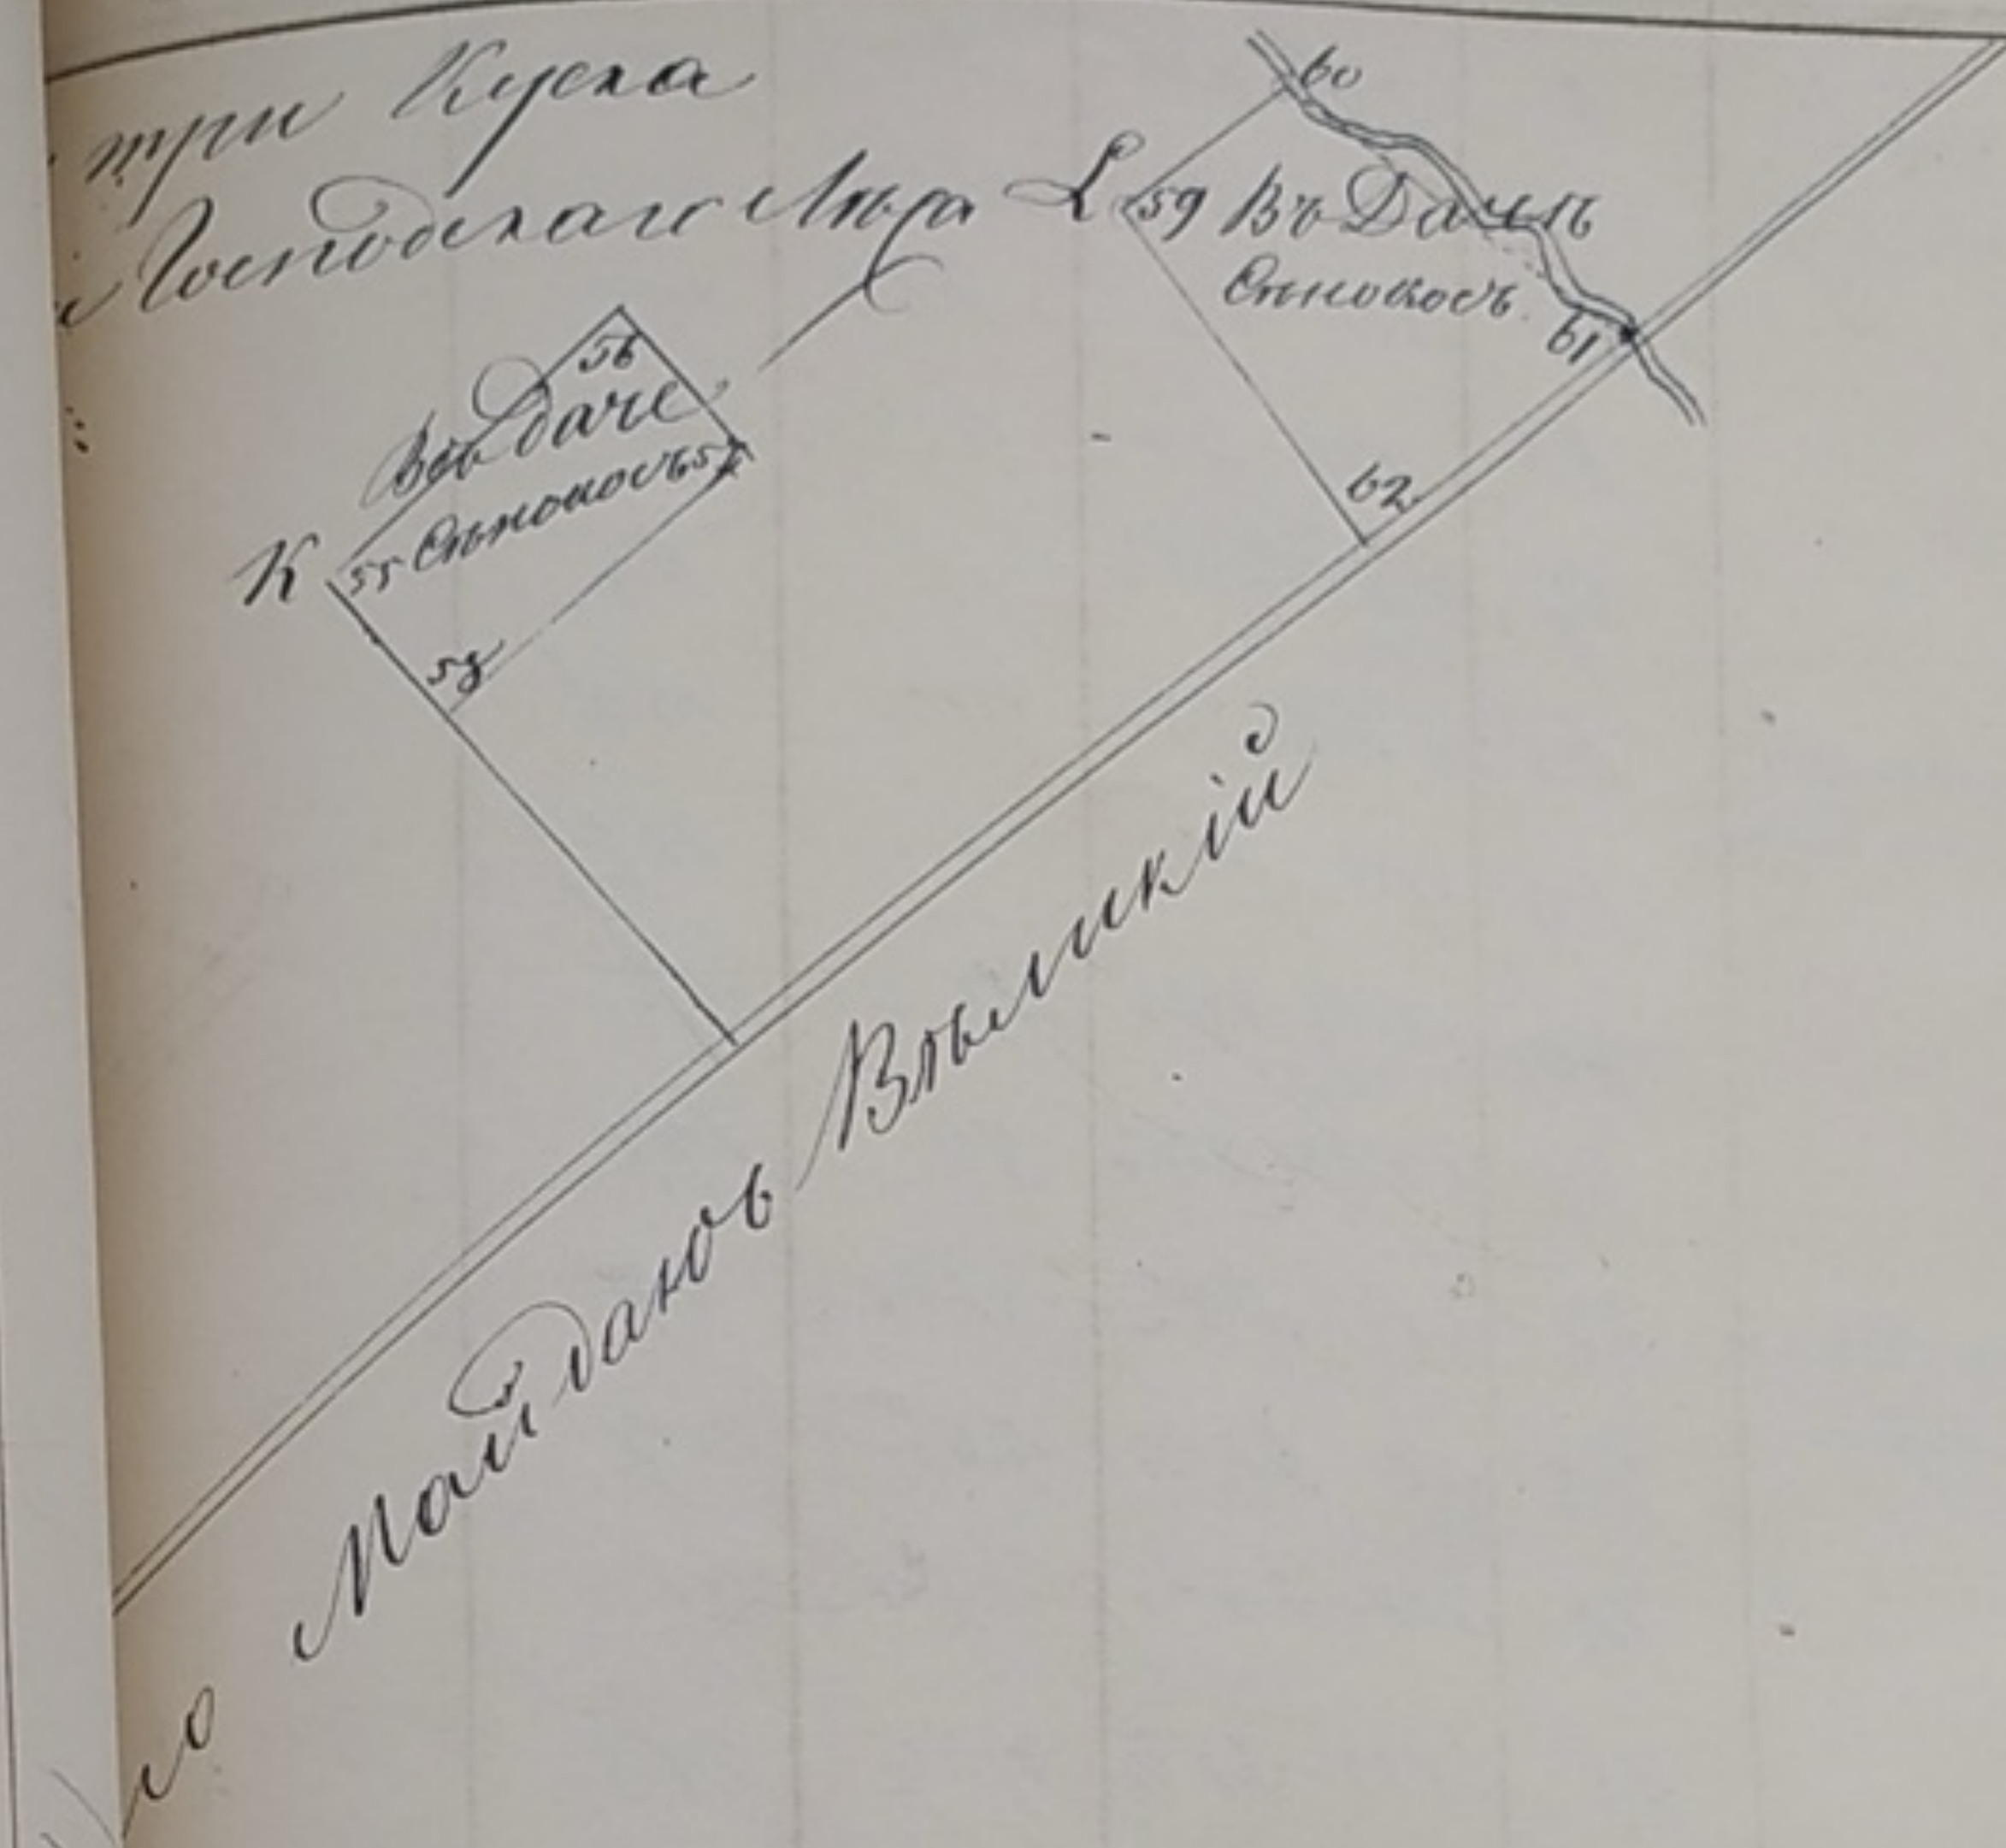 три Куска
Господскаго Лѣса
L
60
59 Въ Дачѣ
Сѣнокосъ
61
62
56
Въ Даче
Сѣнокосъ 57
K 55
58
Майданъ Вѣликій
ло